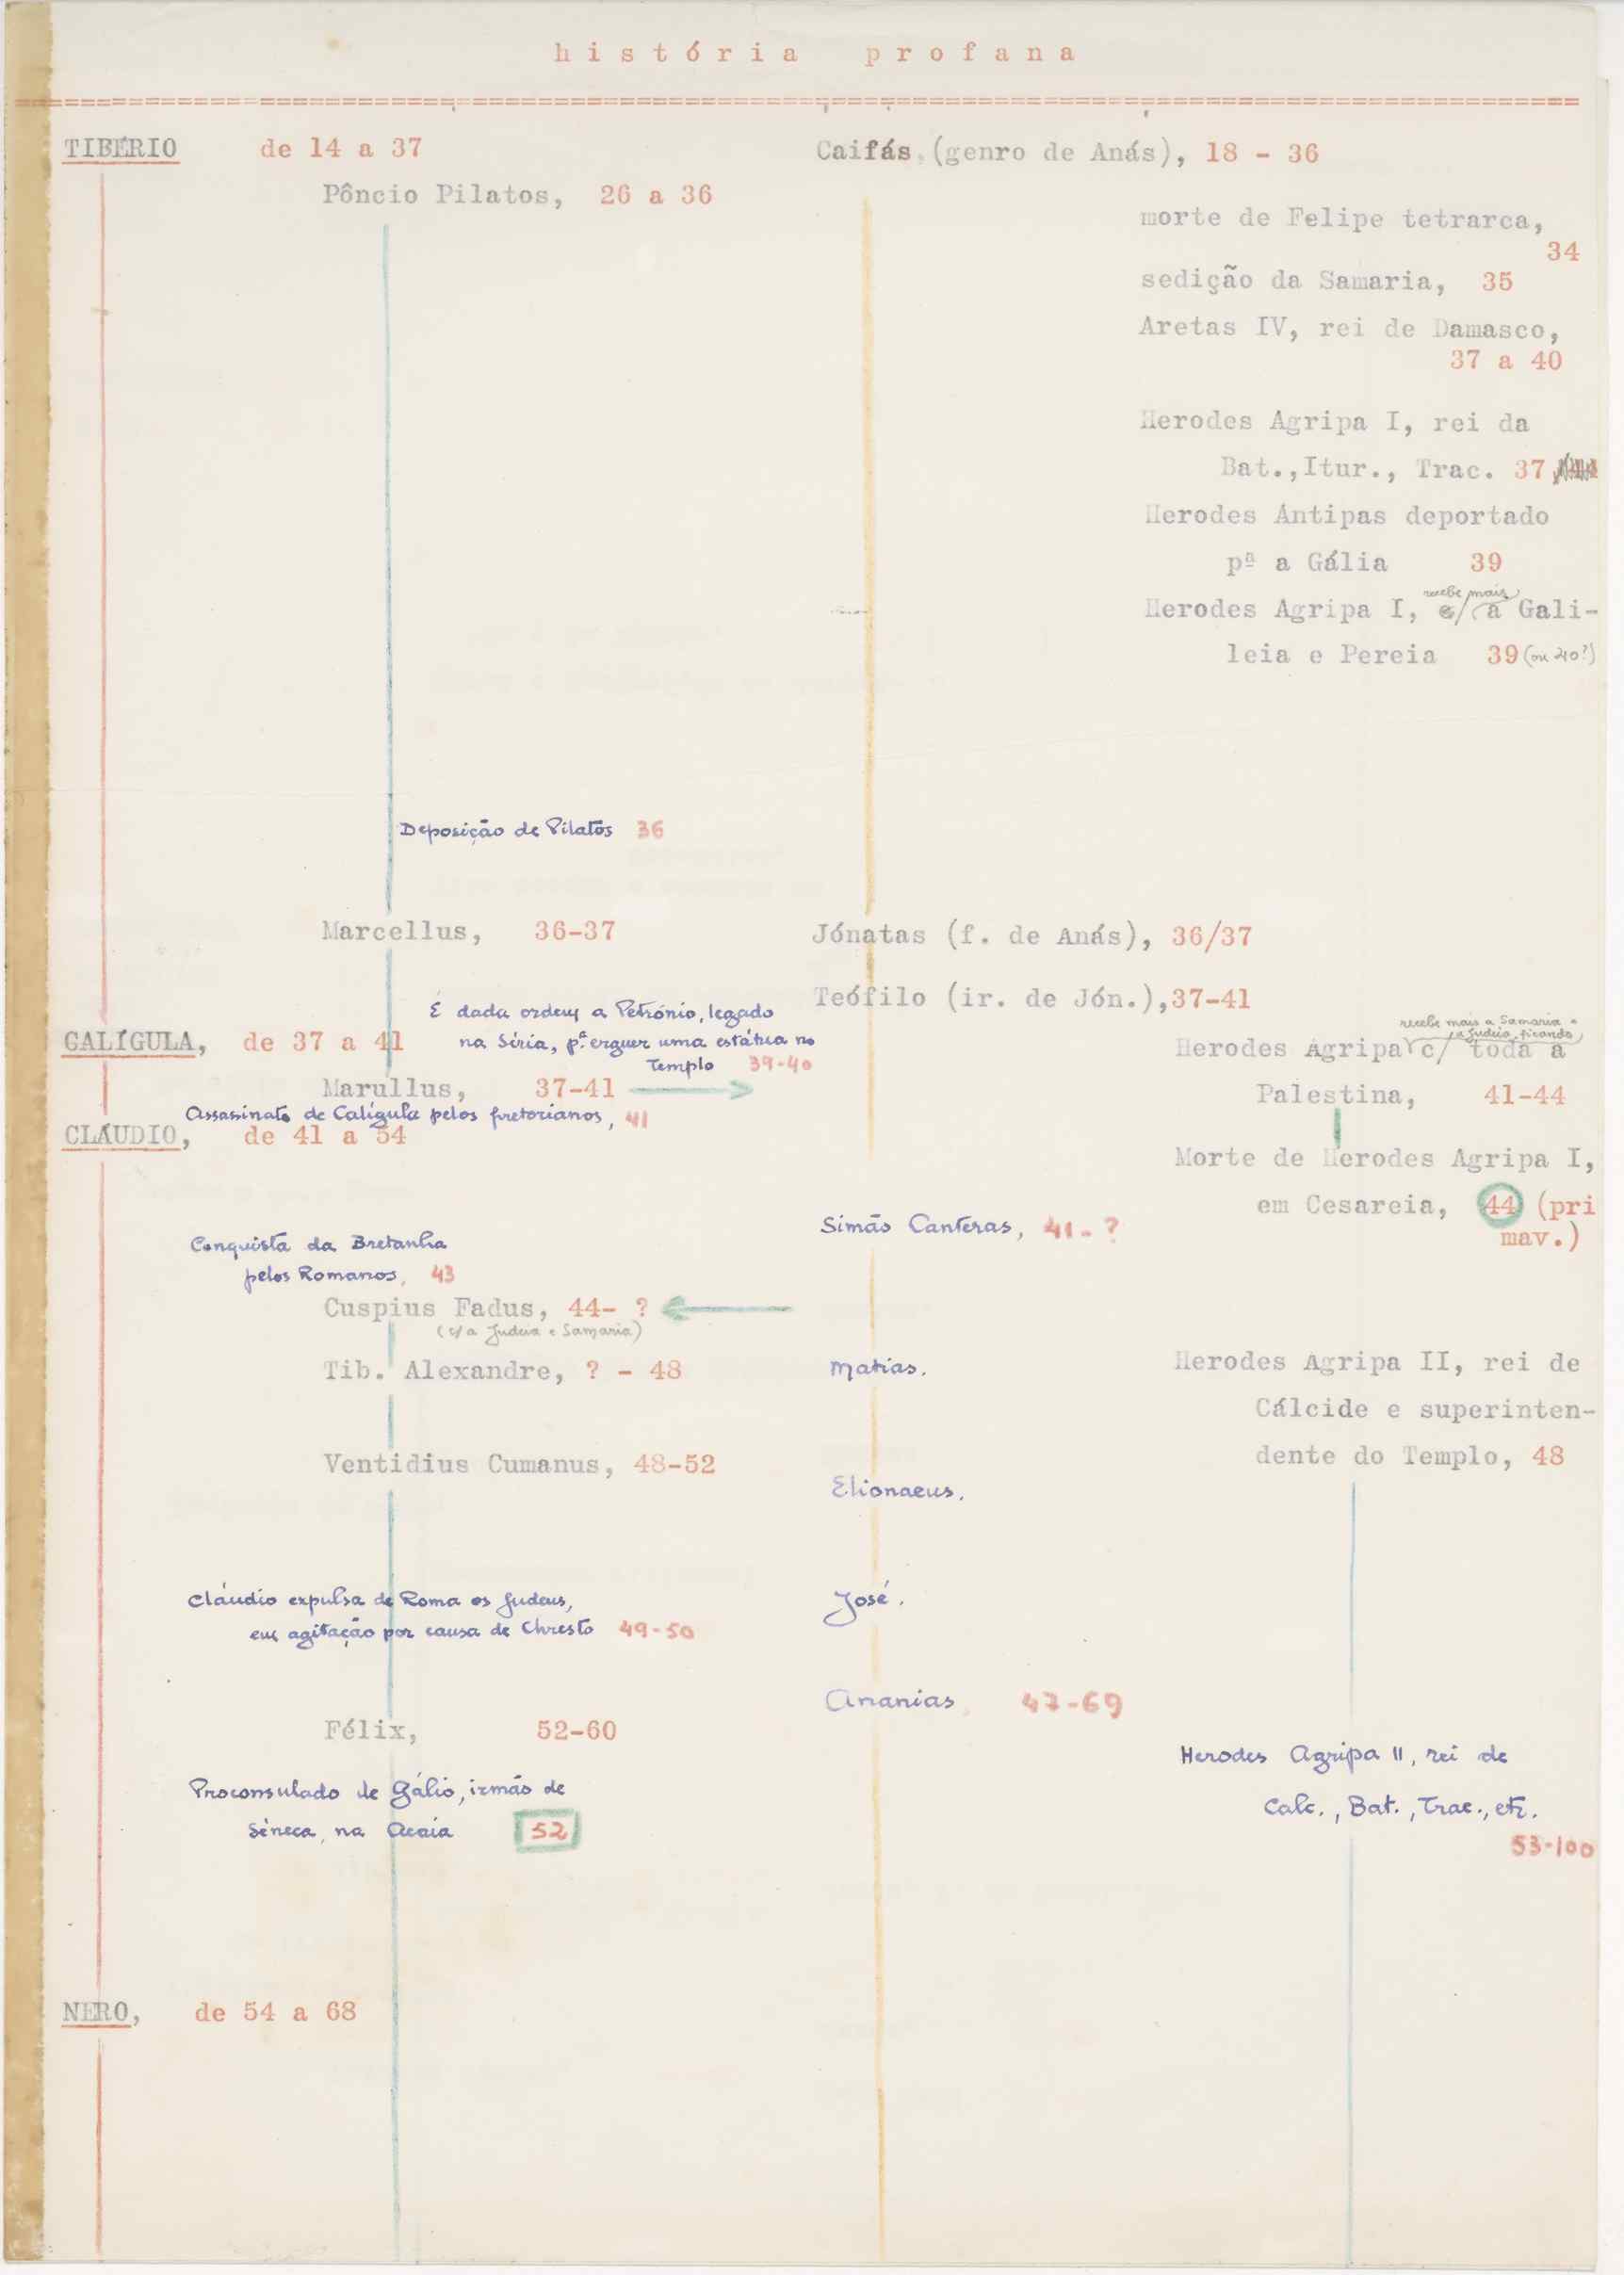 história profana
TIBÉRIO de 14 a 37
Pôncio Pilatos, 26 a 36
Caifás (genro de Anás), 18 - 36
morte de Felipe tetrarca,
34
sedição da Samaria, 35
Aretas IV, rei de Damasco,
37 a 40
Herodes Agripa I, rei da
Bat.,Itur., Trac. 37
Herodes Antipas deportado
pª a Gália 39
recebe mais
Herodes Agripa I, c/ a Gali-
leia e Pereia 39 (ou 40?)
Deposição de Pilatos 36
Marcellus, 36-37
Jónatas (f. de Anás), 36/37
Teófilo (ir. de Jón.),37-41
É dada ordem a Petrónio, legado
na Síria, pª erguer uma estátua no
Templo 39-40
CALÍGULA, de 37 a 41
Marullus, 37-41
Assassinato de Calígula pelos pretorianos, 41
CLÁUDIO, de 41 a 54
recebe mais a Samaria e
a Judeia, ficando
Herodes Agripa c/ toda a
Palestina, 41-44
Morte de Herodes Agripa I,
em Cesareia, 44 (pri
mav.)
Simão Canteras, 41-?
Conquista da Bretanha
pelos Romanos, 43
Cuspius Fadus, 44- ?
(c/a Judeia e Samaria)
Tib. Alexandre, ? - 48
Matias.
Herodes Agripa II, rei de
Cálcide e superinten-
dente do Templo, 48
Ventidius Cumanus, 48-52
Elionaeus.
Cláudio expulsa de Roma os Judeus,
em agitação por causa de Chresto 49-50
José.
Ananias, 47-69
Félix, 52-60
Proconsulado de Gálio, irmão de
Séneca, na Acaia 52
Herodes Agripa II, rei de
Calc., Bat., Trac., etc.
53-100
NERO, de 54 a 68